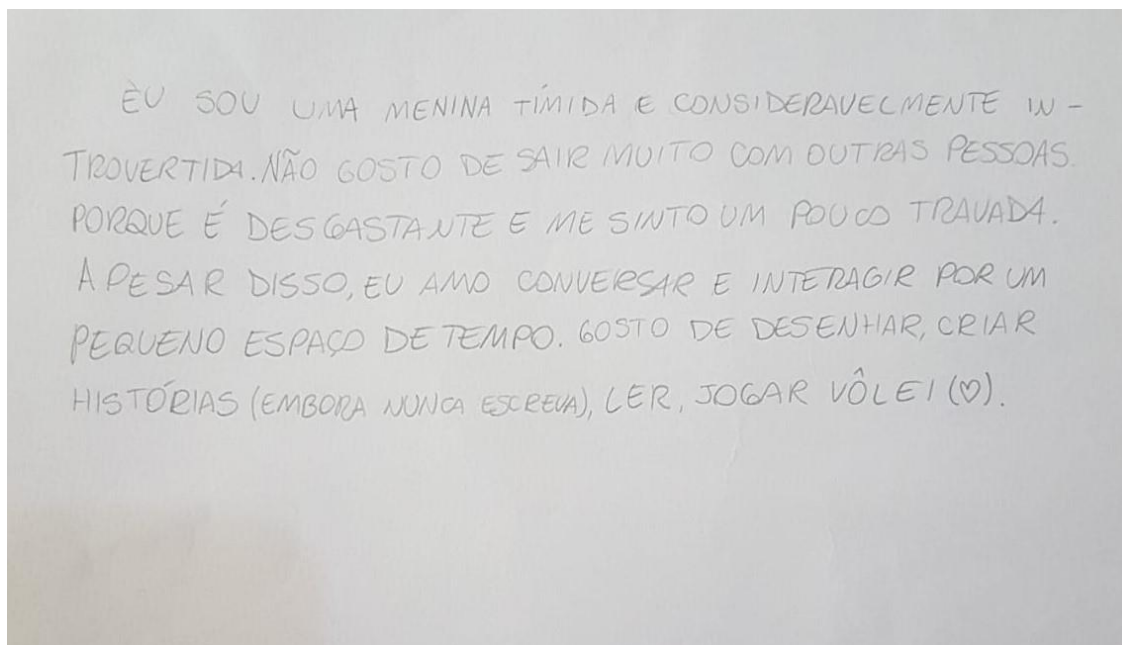 EU SOU UMA MENINA TÍMIDA E CONSIDERAVELMENTE IN-
TROVERTIDA. NÃO GOSTO DE SAIR MUITO COM OUTRAS PESSOAS.
PORQUE É DESGASTANTE E ME SINTO UM POUCO TRAVADA.
APESAR DISSO, EU AMO CONVERSAR E INTERAGIR POR UM
PEQUENO ESPAÇO DE TEMPO. GOSTO DE DESENHAR, CRIAR
HISTÓRIAS (EMBORA NUNCA ESCREVA), LER, JOGAR VÔLEI (♡).